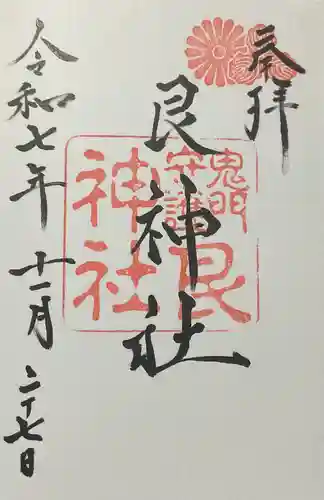 奉拝
鬼門
守護
艮
神社
艮神社
令和七年十一月二十七日